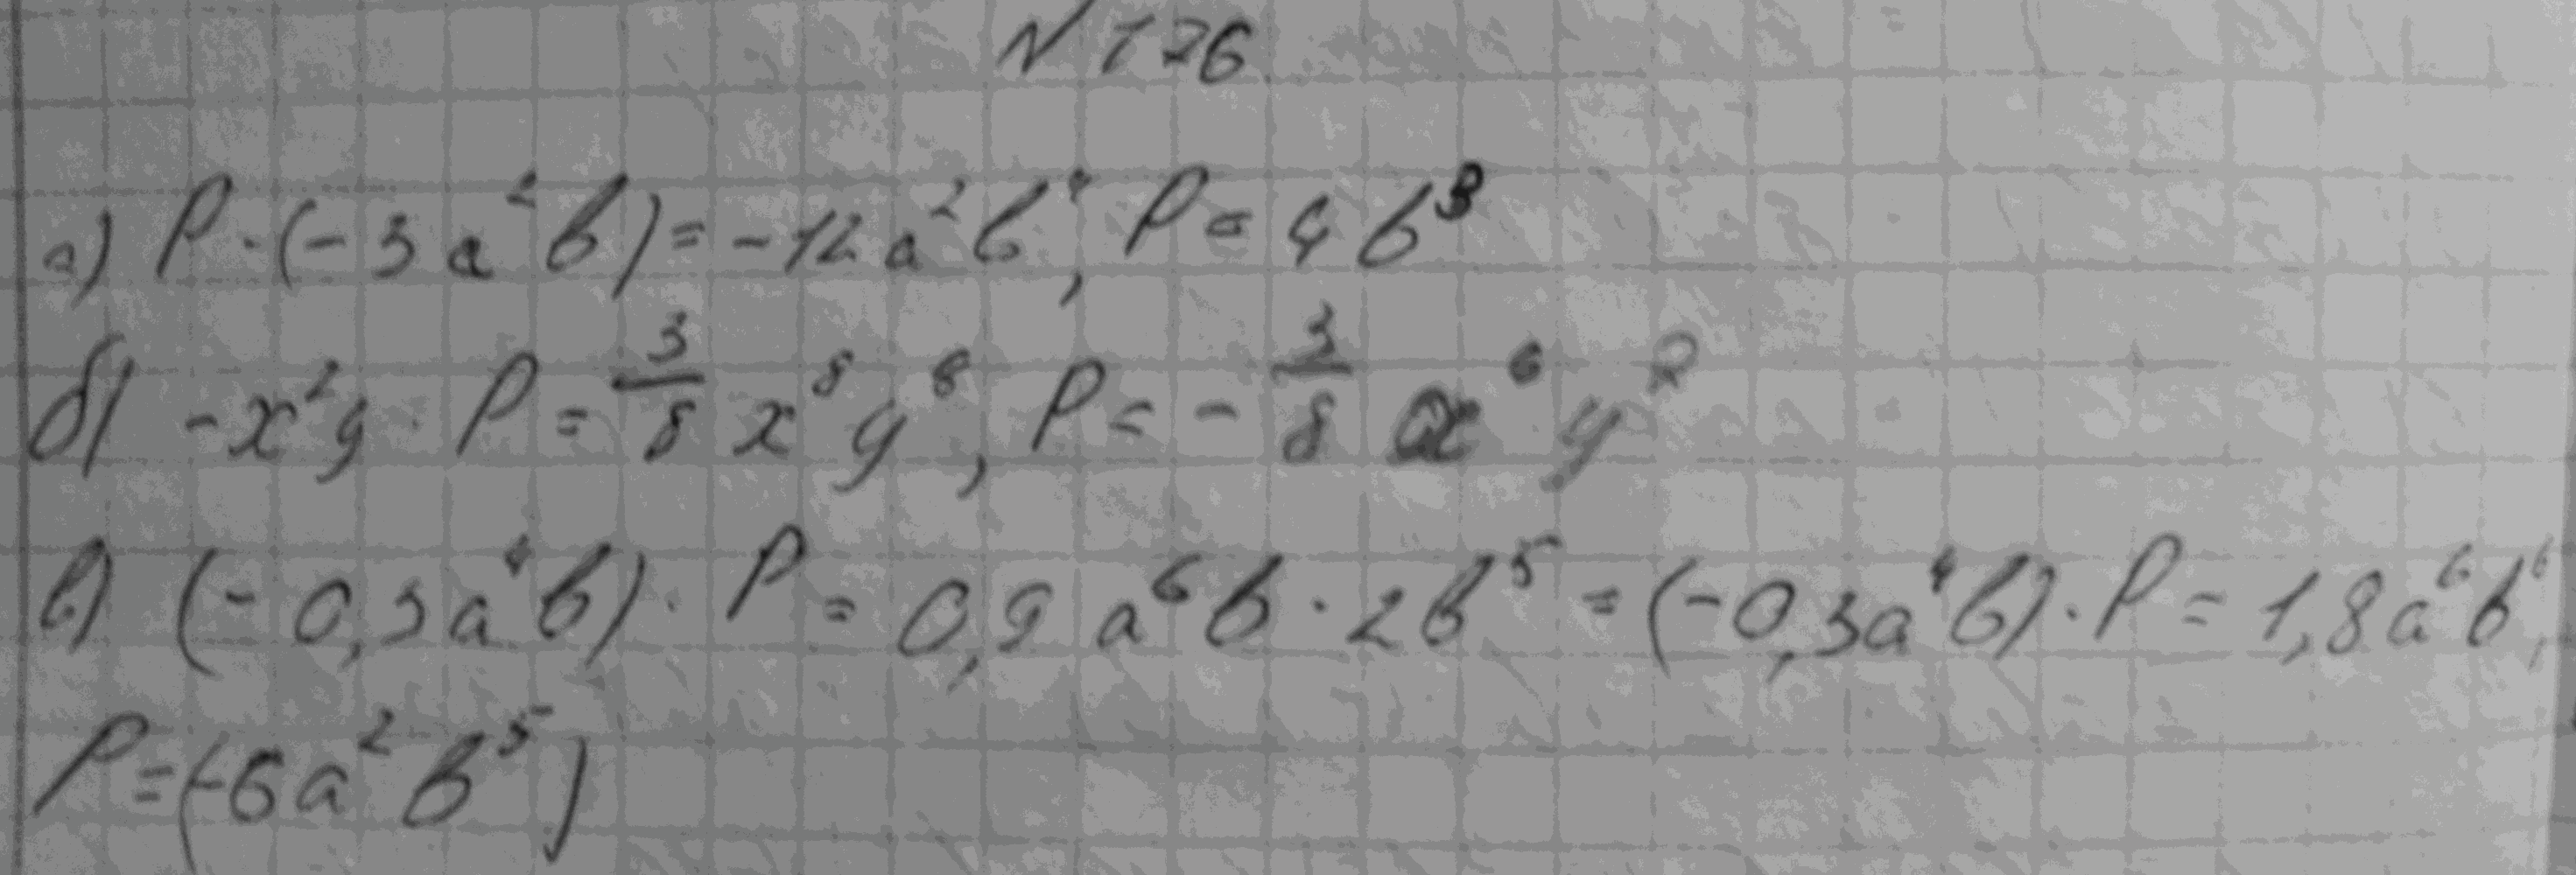 N 176
а) P · (-3a²b) = -12a²b⁴, P = 4b³
б) -x²y · P = 3/8 x⁸y⁸, P = - 3/8 x⁶y
в) (-0,3a⁴b) · P = 0,9a⁶b · 2b⁵ = (-0,3a⁴b) · P = 1,8a⁶b⁶,
P = (-6a²b⁵)